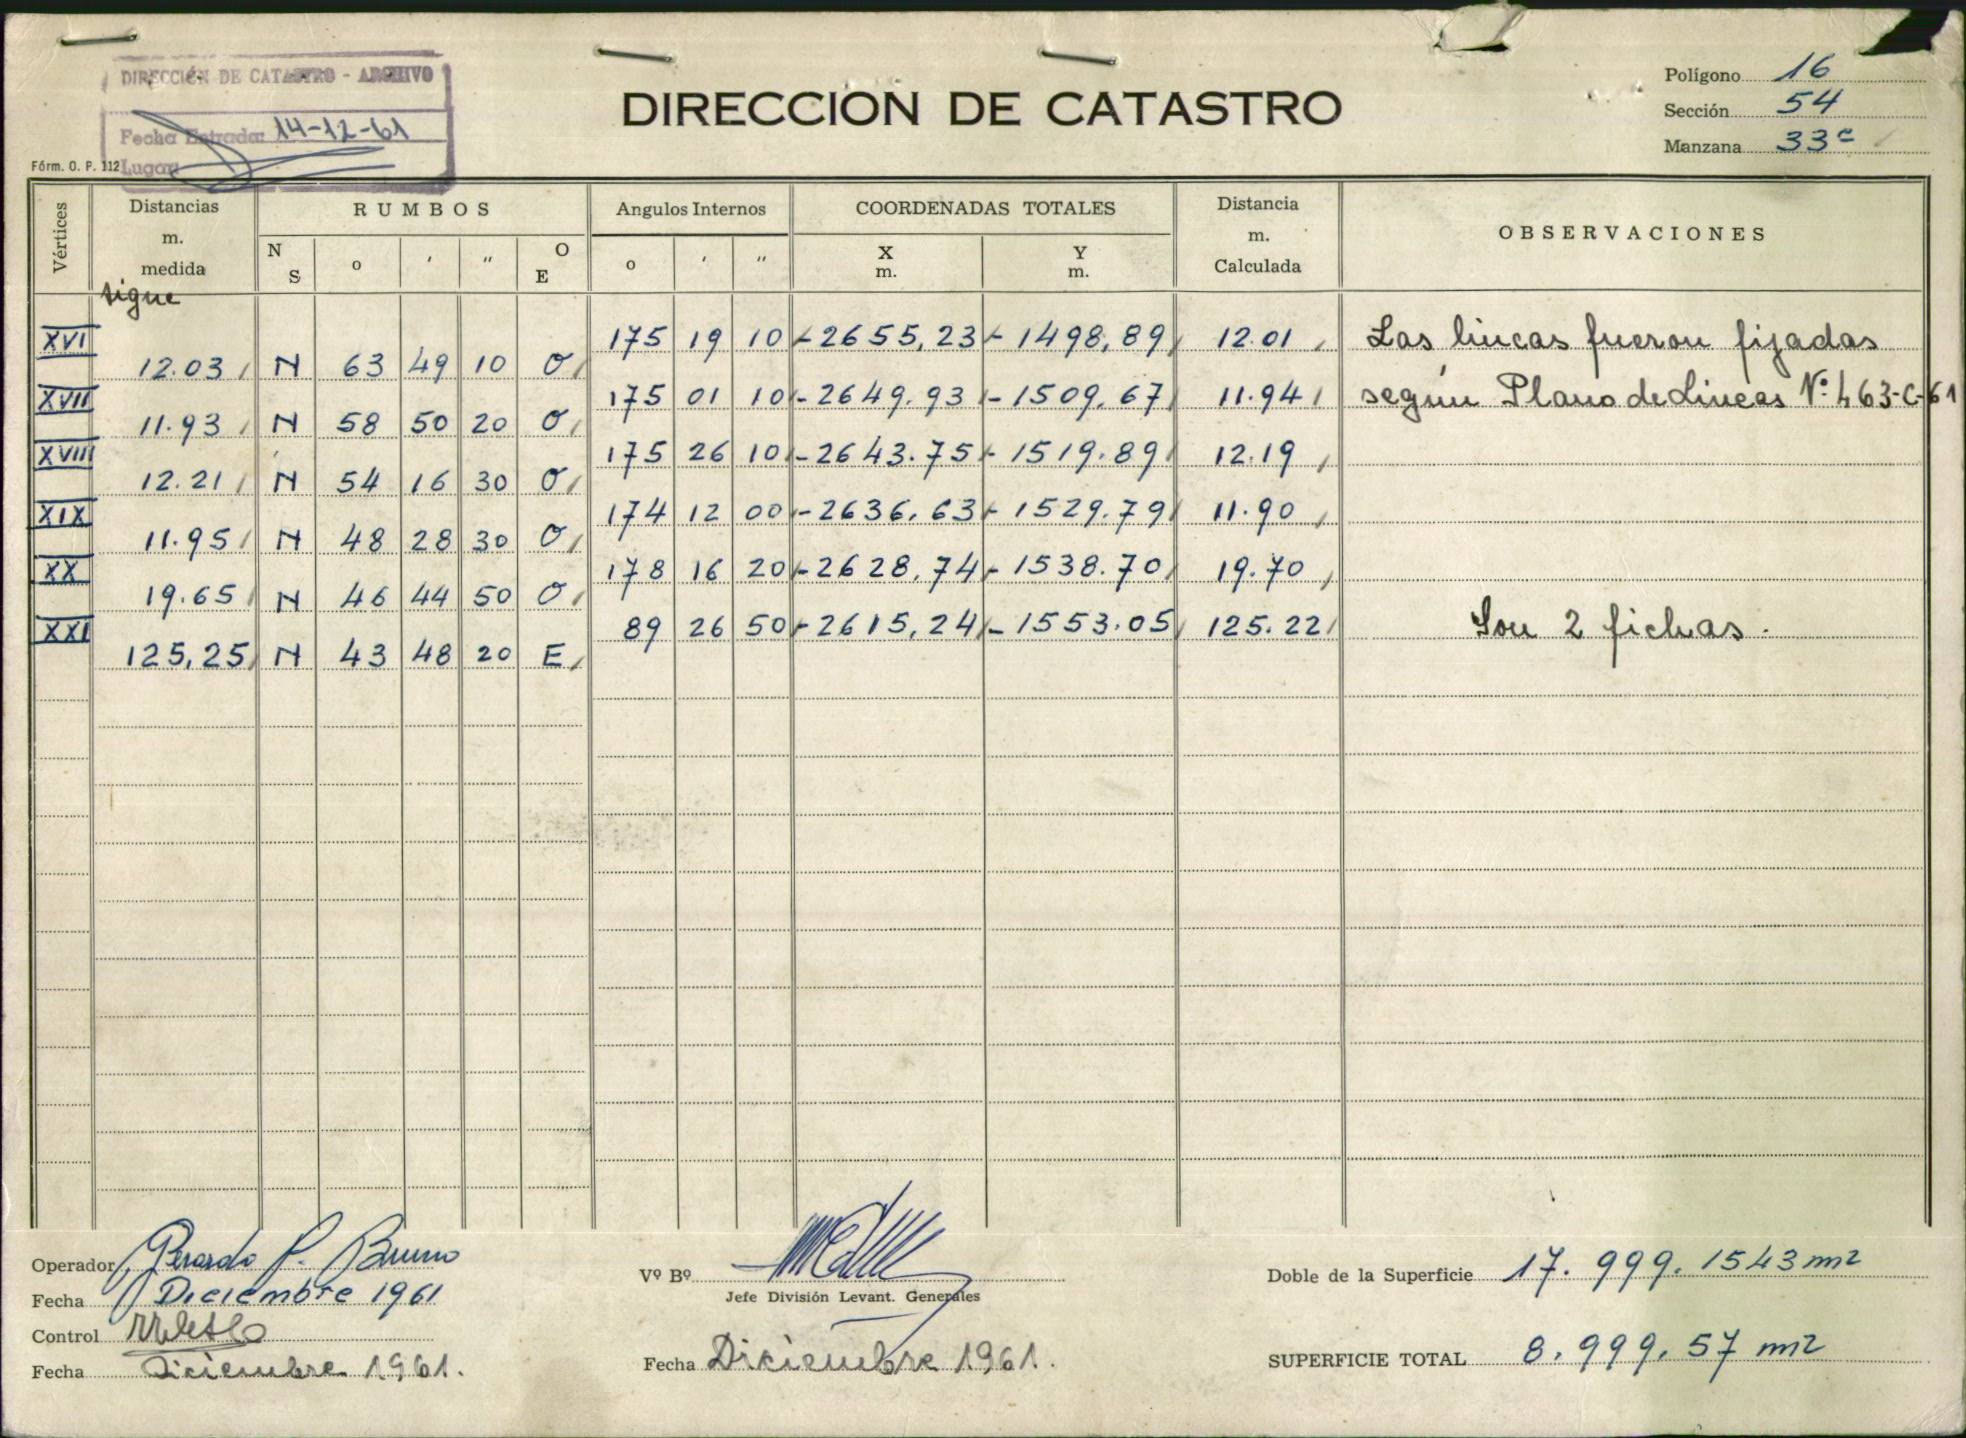 DIRECCIÓN DE CATASTRO - ARCHIVO
Fecha Entrada: 14-12-61
Lugar:
Fórm. O. P. 112
DIRECCION DE CATASTRO
Polígono 16
Sección 54
Manzana 33c
Vértices Distancias m. medida RUMBOS Angulos Internos COORDENADAS TOTALES Distancia m. Calculada OBSERVACIONES
N S o ' " O E o ' " X m. Y m.
sigue
XVI 175 19 10 -2655,23 - 1498,89 12.01 Las lineas fueron fijadas
12.03 N 63 49 10 O
XVII 175 01 10 -2649.93 -1509.67 11.94 según Plano de Lineas Nº 463-C-61
11.93 N 58 50 20 O
XVIII 175 26 10 -2643.75 - 1519.89 12.19
12.21 N 54 16 30 O
XIX 174 12 00 -2636,63 - 1529.79 11.90
11.95 N 48 28 30 O
XX 178 16 20 -2628,74 - 1538.70 19.70
19.65 N 46 44 50 O
XXI 89 26 50 -2615,24 - 1553.05 125.22 Son 2 fichas.
125,25 N 43 48 20 E
Operador Gerardo P. Bruno
Fecha Diciembre 1961
Control
Fecha Diciembre 1961.
Vº Bº
Jefe División Levant. Generales
Fecha Diciembre 1961.
Doble de la Superficie 17.999.1543 m2
SUPERFICIE TOTAL 8.999.57 m2